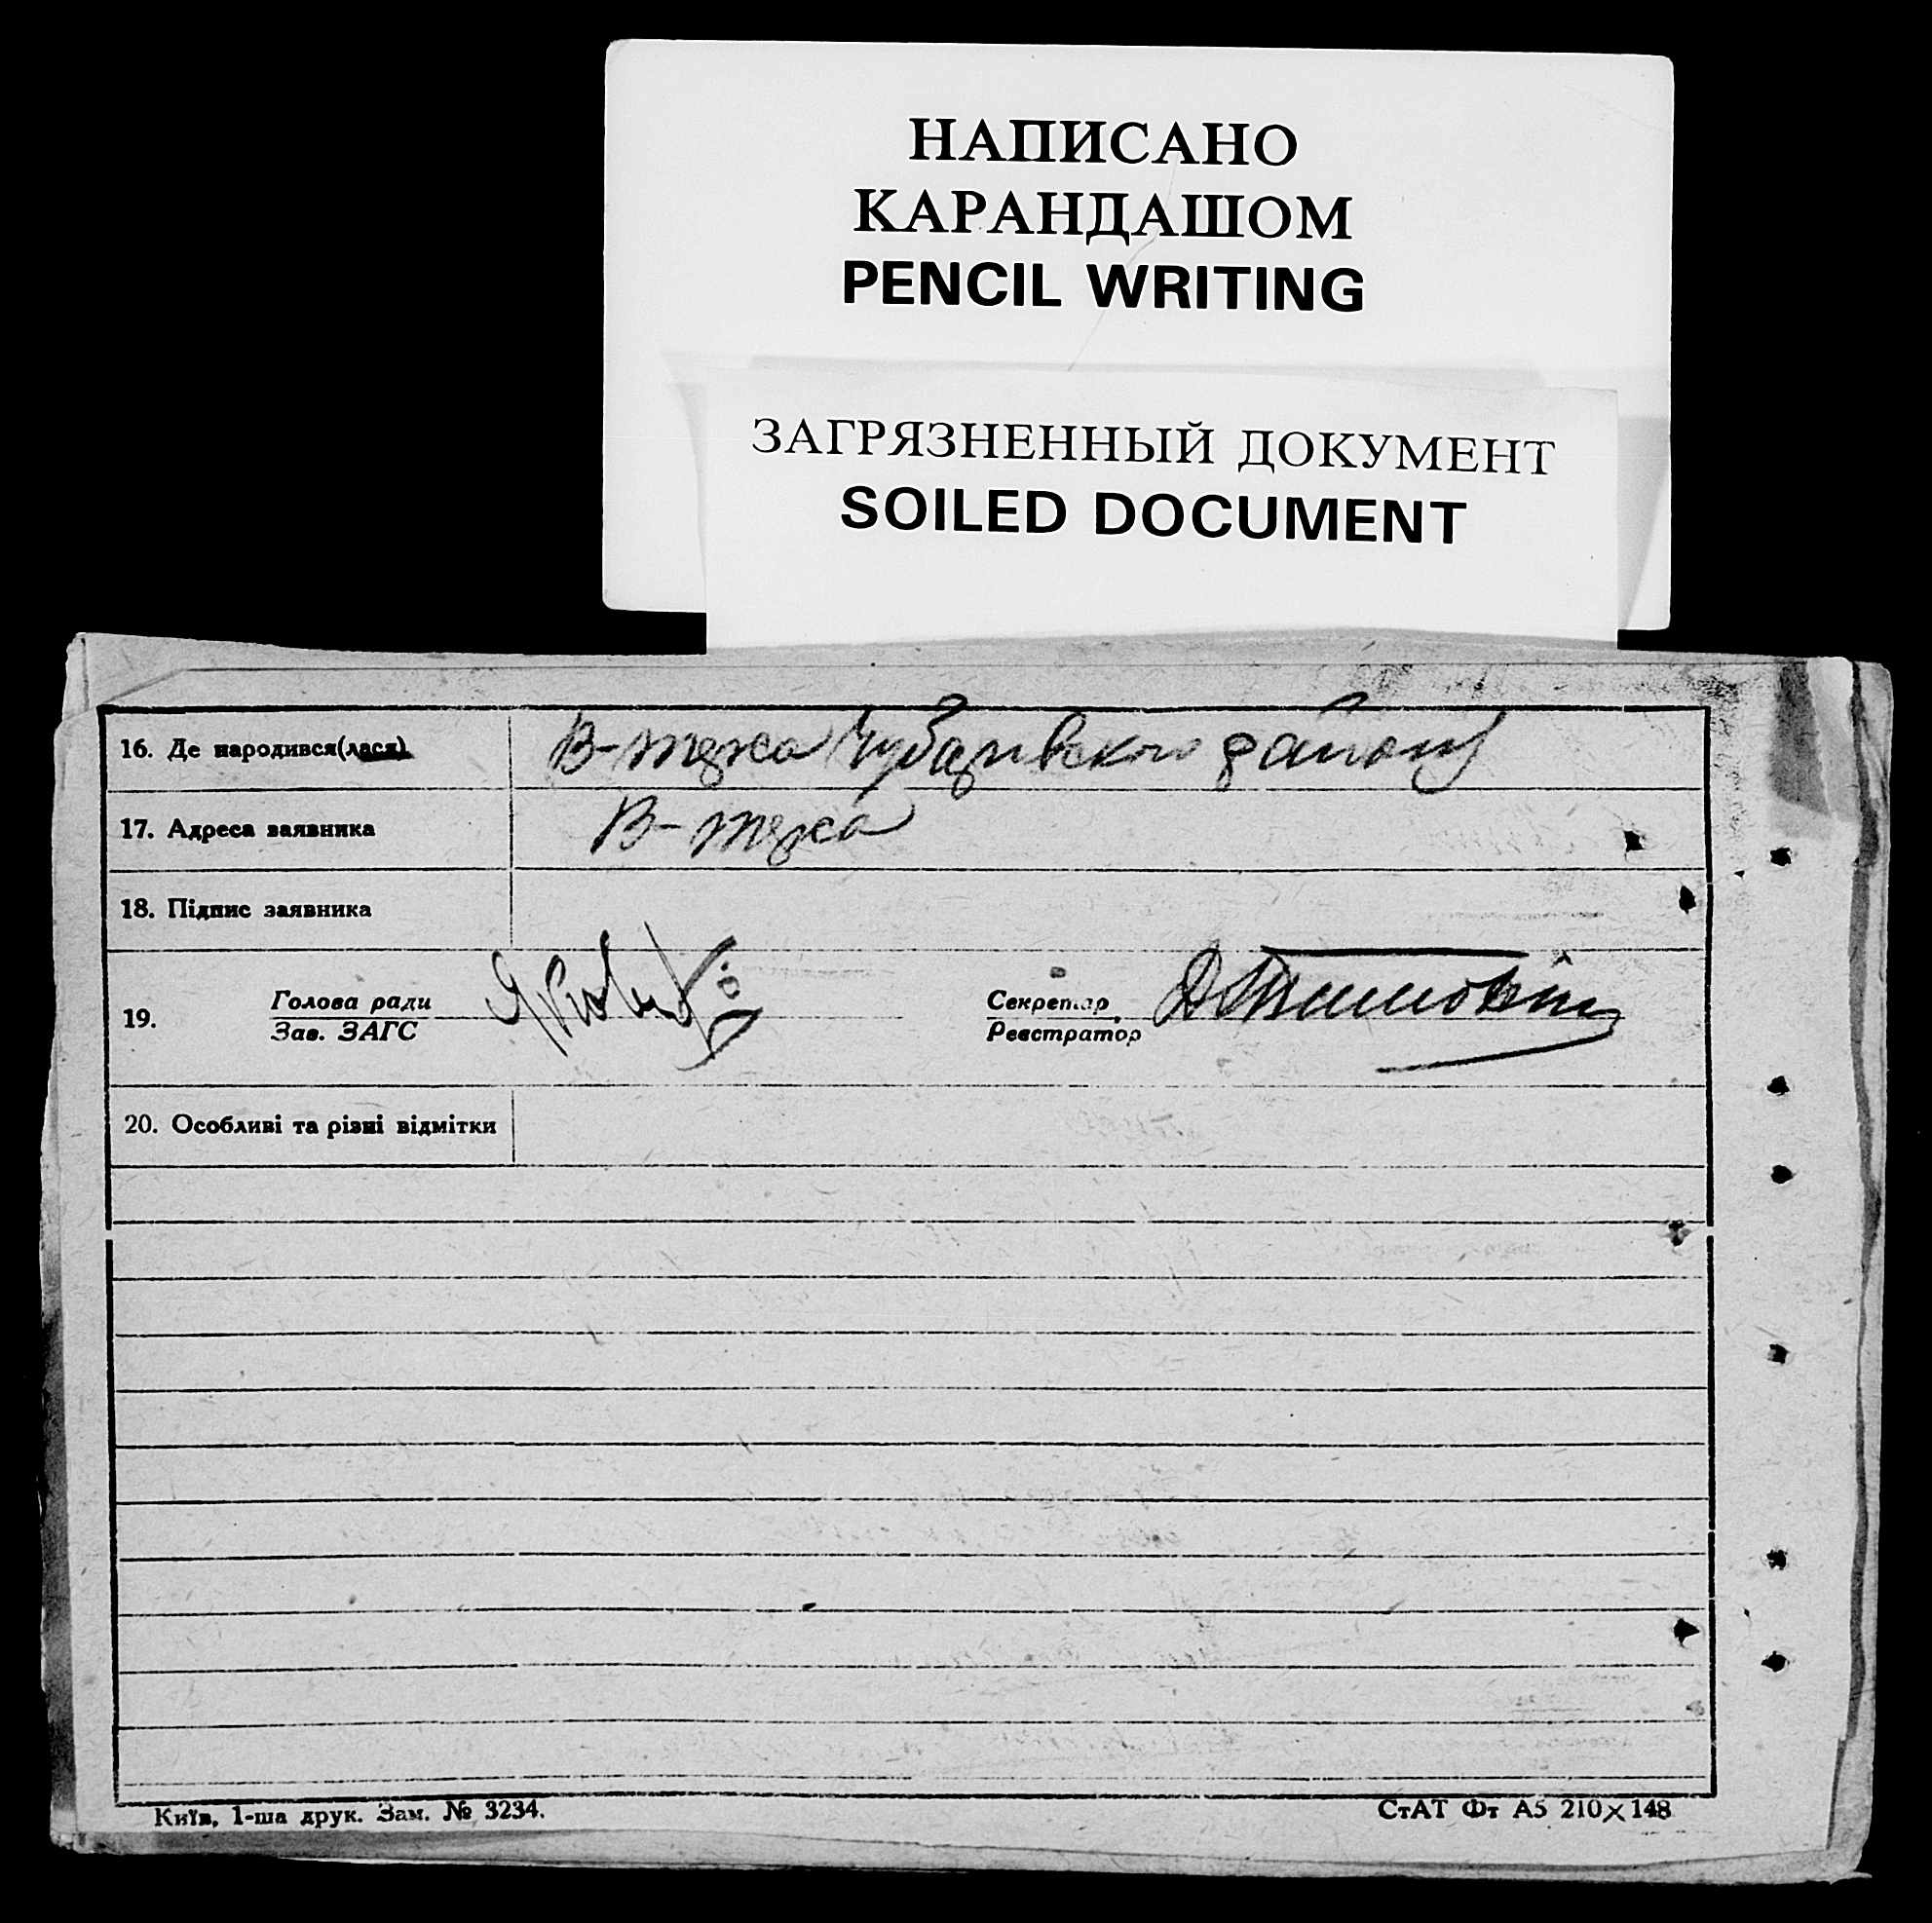 НАПИСАНО
КАРАНДАШОМ
PENCIL WRITING
ЗАГРЯЗНЕННЫЙ ДОКУМЕНТ
SOILED DOCUMENT
16. Де народився(лася) В-тяжа Чубарівского району
17. Адреса заявника В-тяжа
18. Підпис заявника
19. Голова ради Секретар
Зав. ЗАГС Реєстратор
20. Особливі та різні відмітки
Київ, 1-ша друк. Зам. № 3234. СтАТ Фт А5 210×148